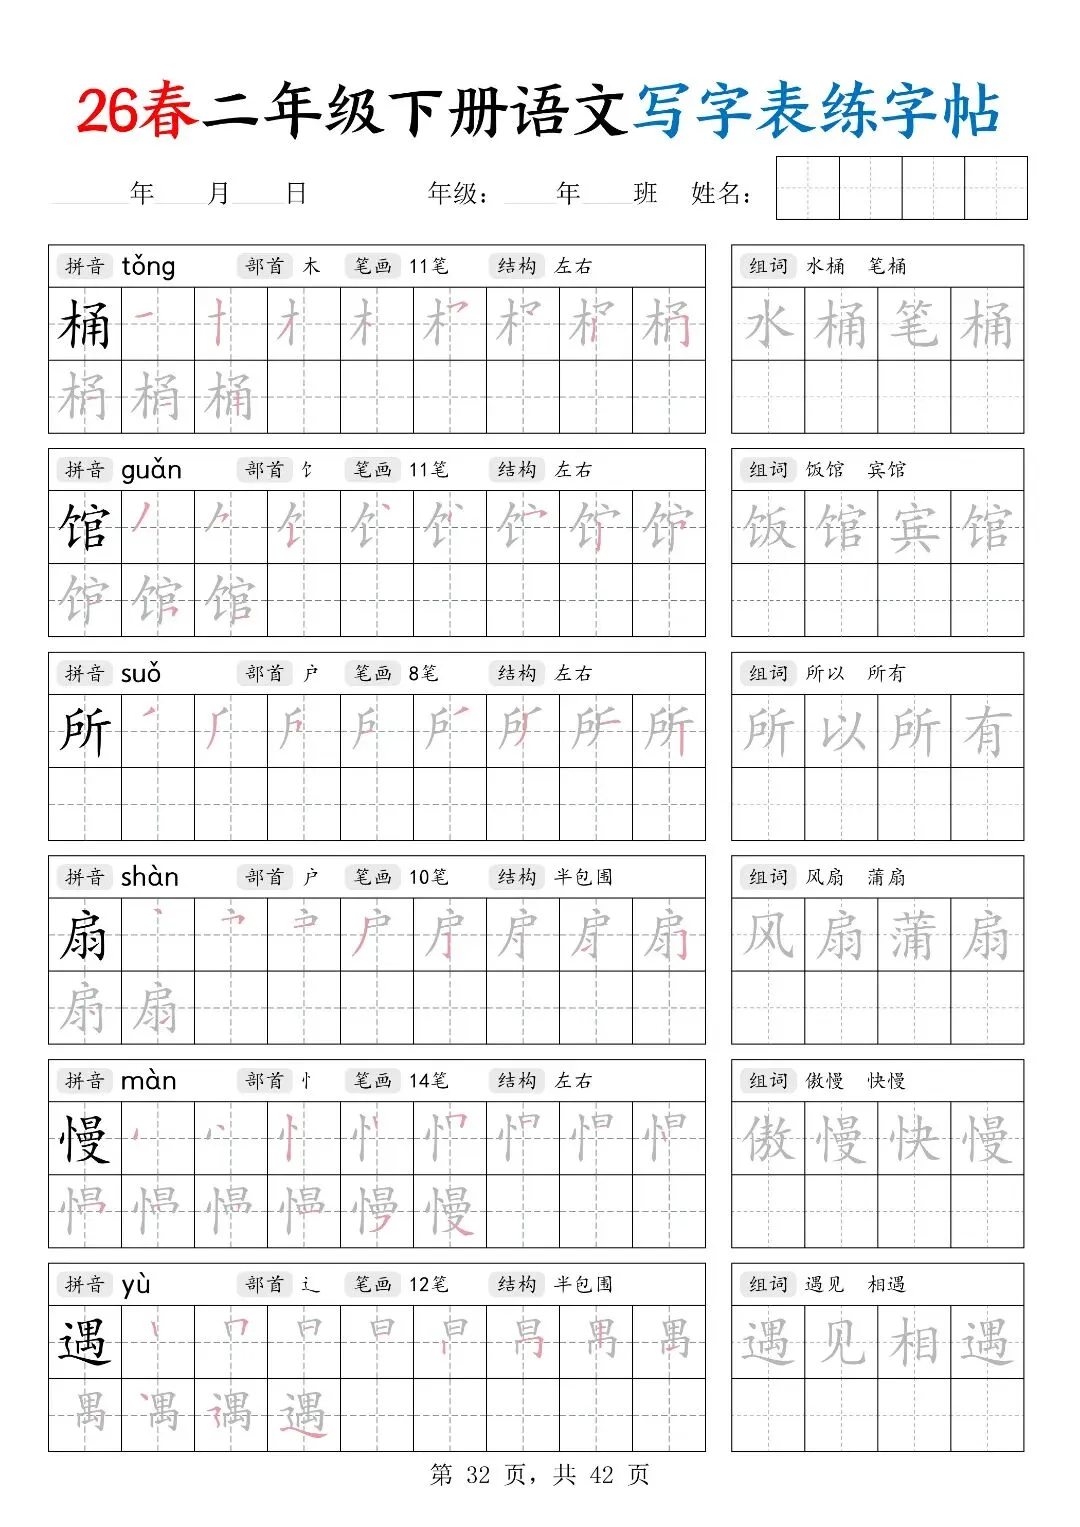 26春二年级下册语文写字表练字帖
年 月 日 年级： 年 班 姓名：
拼音 tǒng 部首 木 笔画 11笔 结构 左右 组词 水桶 笔桶
桶 水桶笔桶
桶
拼音 guǎn 部首 饣 笔画 11笔 结构 左右 组词 饭馆 宾馆
馆 饭馆宾馆
馆
拼音 suǒ 部首 户 笔画 8笔 结构 左右 组词 所以 所有
所 所 所以所有
拼音 shàn 部首 户 笔画 10笔 结构 半包围 组词 风扇 蒲扇
扇 风扇蒲扇
扇
拼音 màn 部首 忄 笔画 14笔 结构 左右 组词 傲慢 快慢
慢 傲慢快慢
慢
拼音 yù 部首 辶 笔画 12笔 结构 半包围 组词 遇见 相遇
遇 遇见相遇
遇
第 32 页，共 42 页